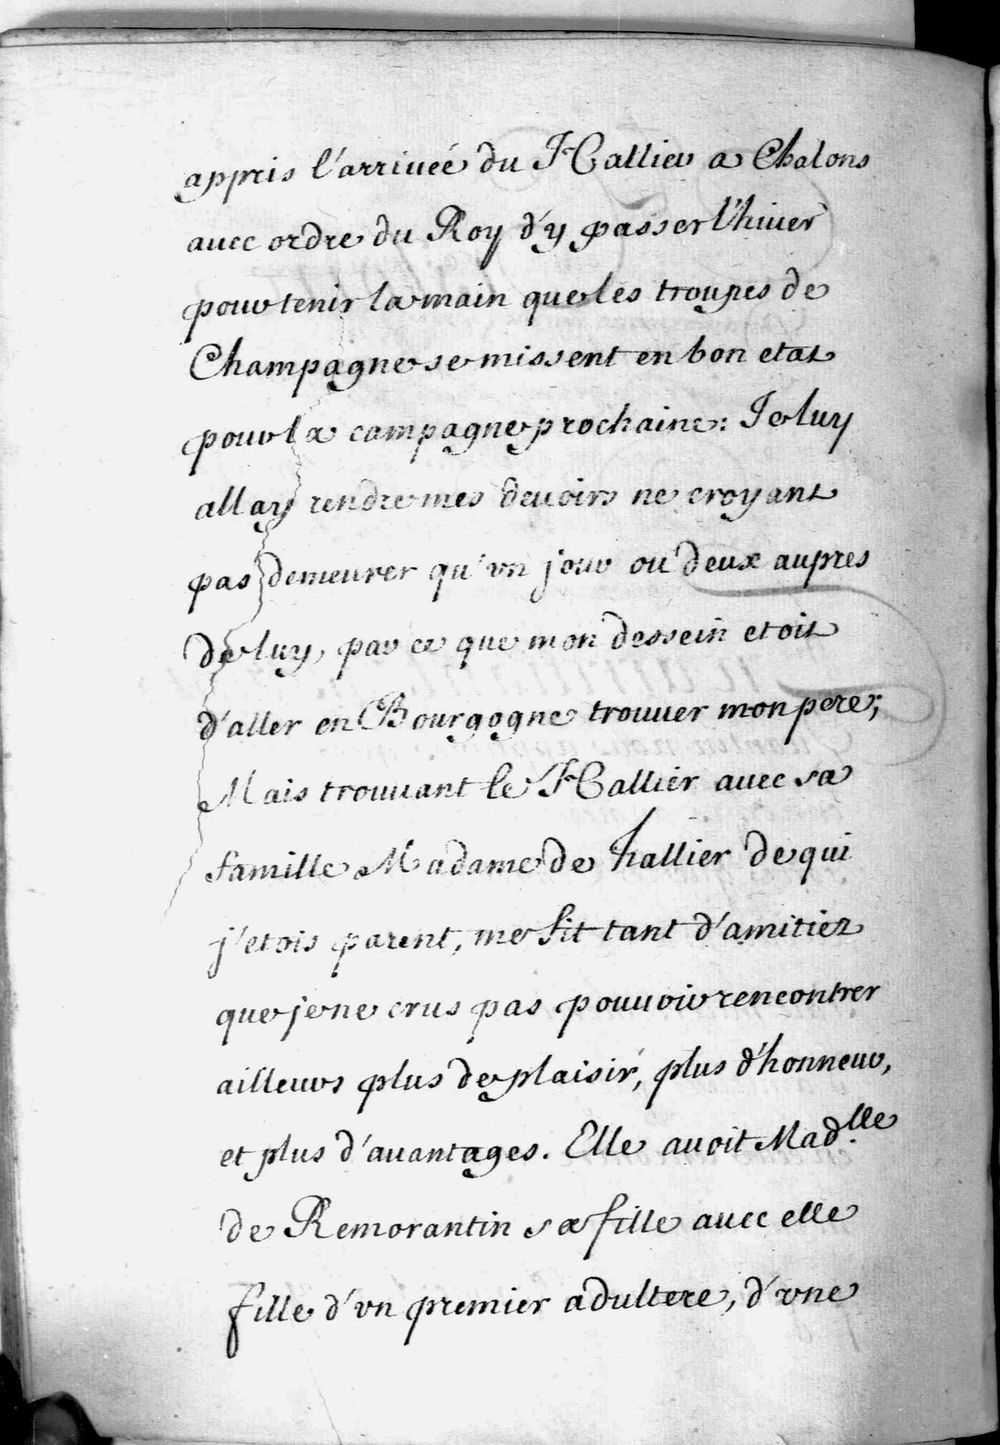 appris l'arriueé du Hallier a Chalons
auec ordre du Roy d'y passer l'hiuer
pour tenir la main que les troupes de
Champagne se missent en bon etat
pour la campagne prochaine: Je luy
allay rendre mes deuoirs ne croyant
pas demeurer qu'vn jour ou deux aupres
de luy, par ce que mon dessein etoit
d'aller en Bourgogne trouuer mon pere;
Mais trouuant le Hallier auec sa
famille Madame de hallier de qui
j'etois parent, me fit tant d'amitiez
que je ne crus pas pouuoir rencontrer
ailleurs plus de plaisir, plus d'honneur,
et plus d'auantages. Elle auoit Mad.lle
de Remorantin sa fille auec elle
fille d'vn premier adultere, d'vne